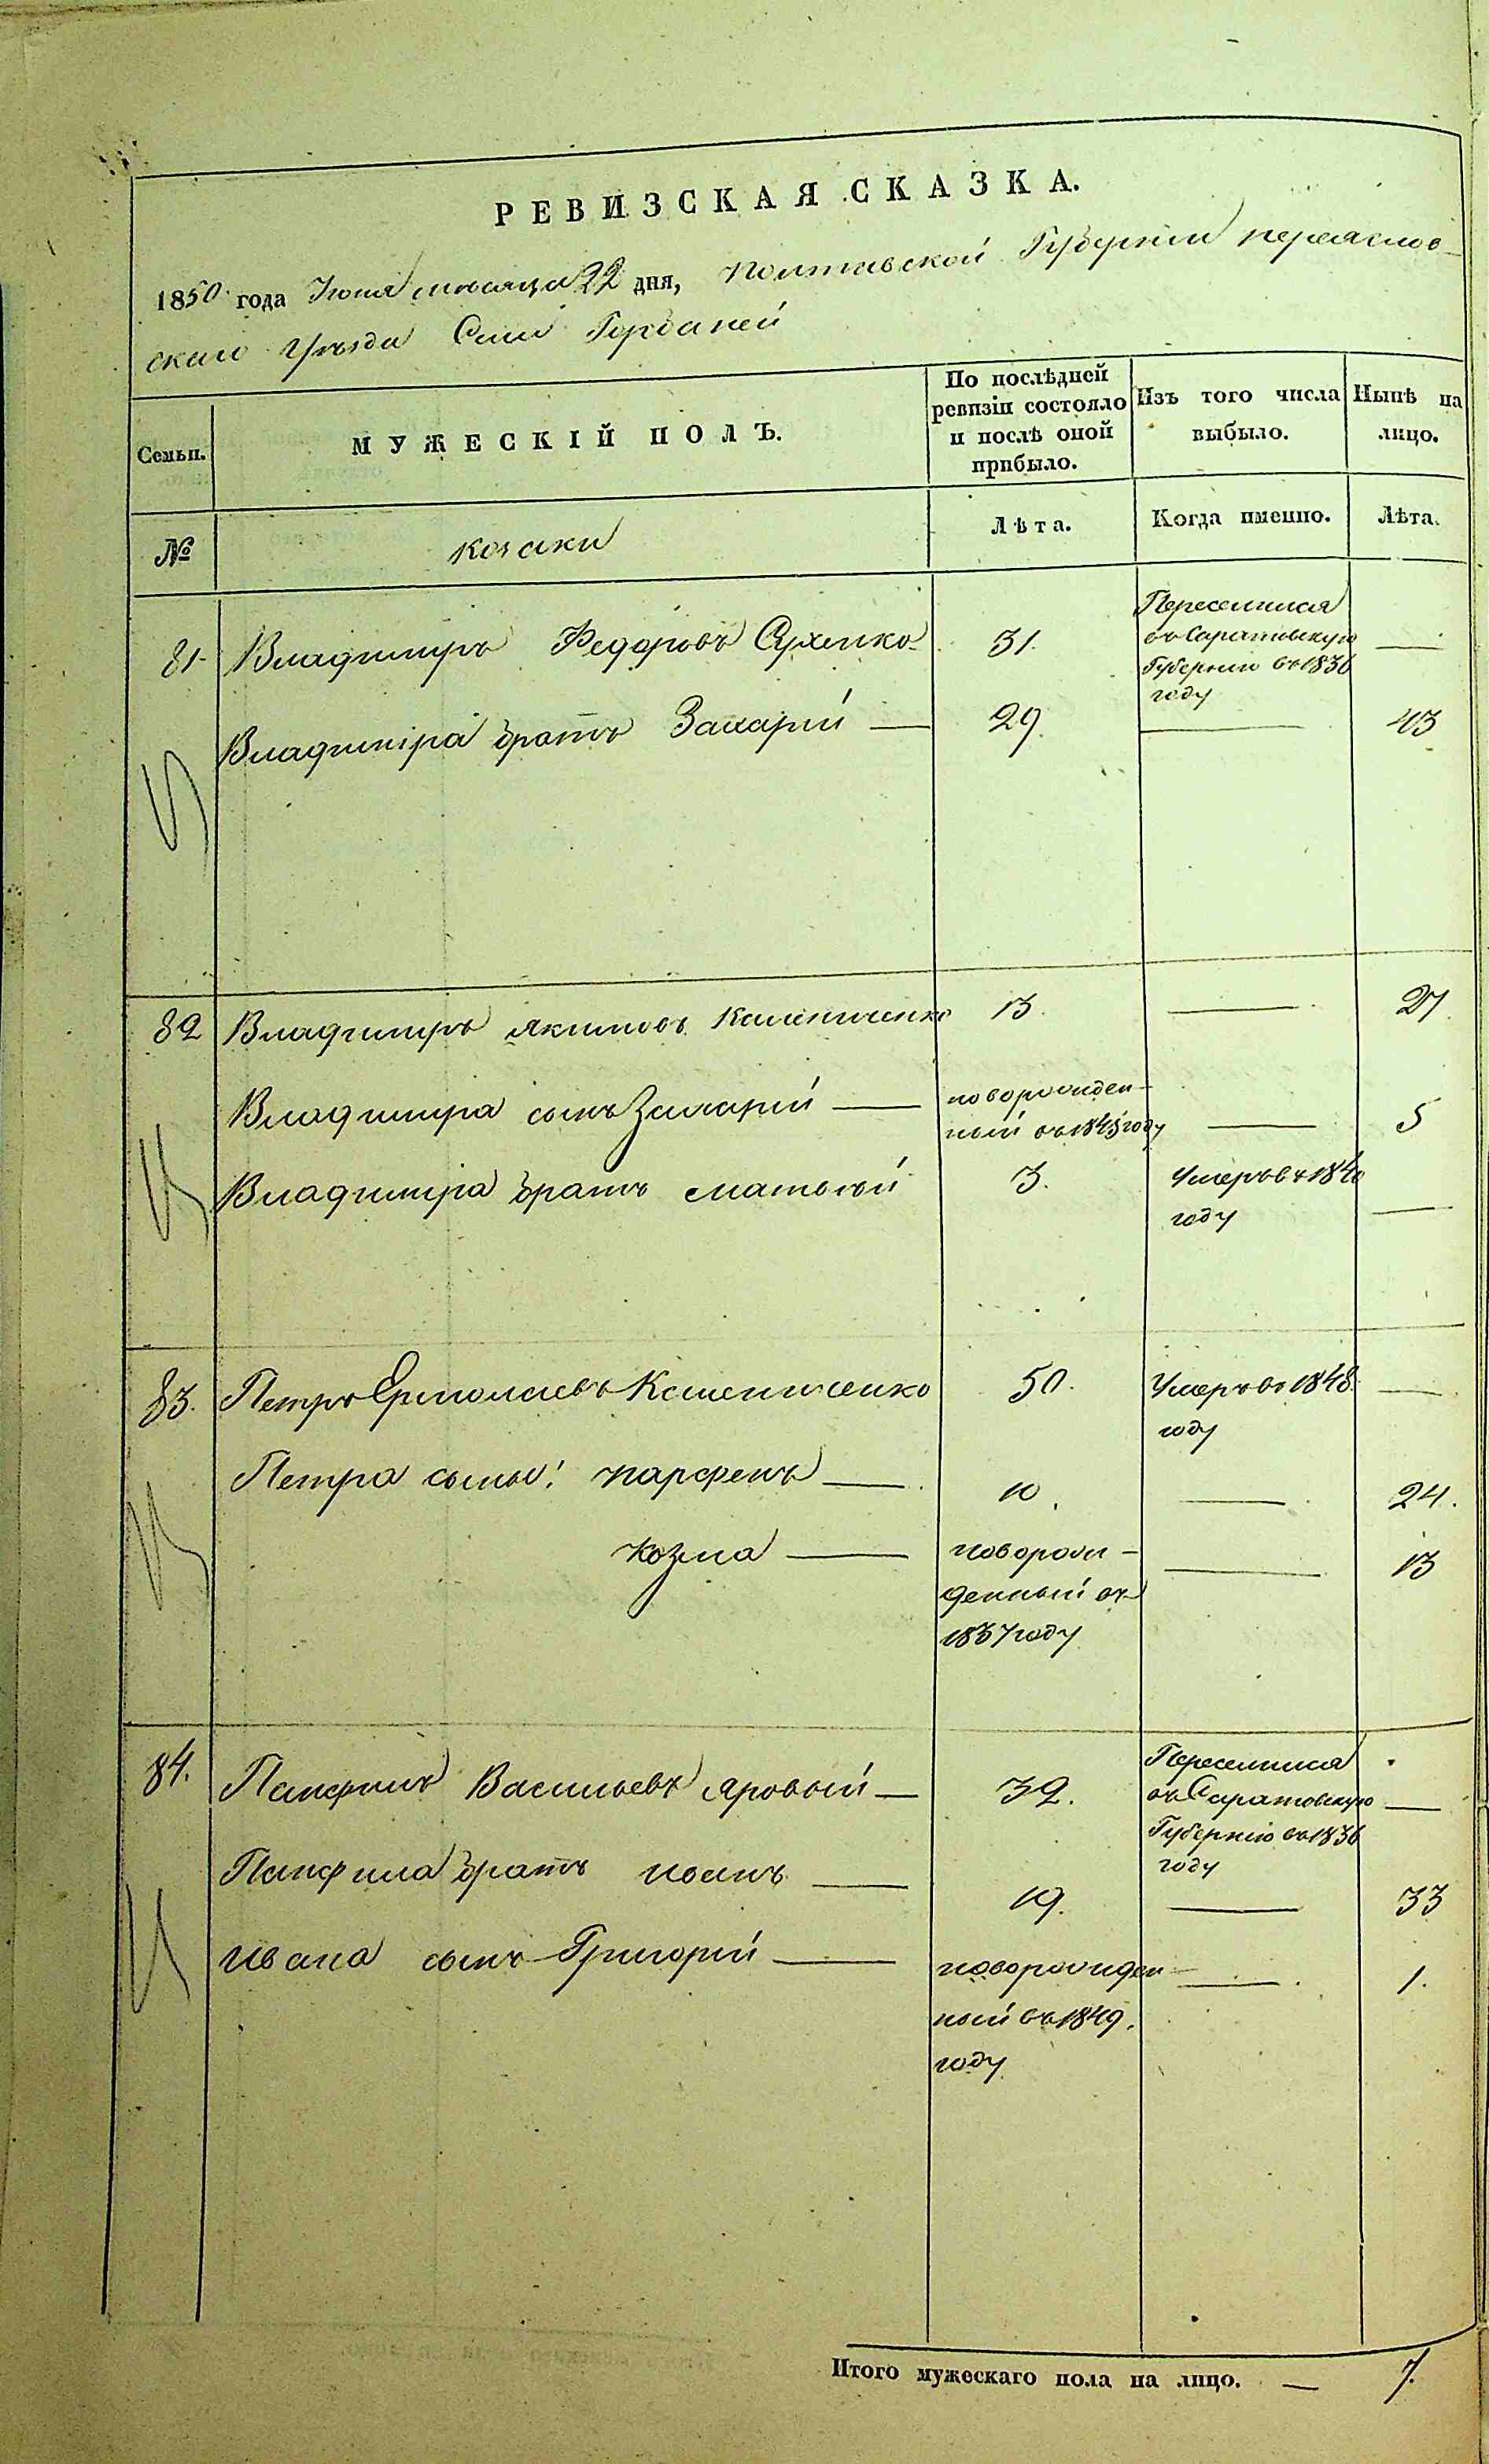 РЕВИЗСКАЯ СКАЗКА.
1850 года Іюня месяца 22 дня, Полтавской Губерніи переяслов-
скаго уезда Села Горбаней
Семьи.
МУЖЕСКІЙ ПОЛЪ.
По послѣдней ревизіи состояло и послѣ оной прибыло.
Изъ того числа выбыло.
Нынѣ на лицо.
№
козаки
Лѣта.
Когда именно.
Лѣта.
81. Владимиръ Федоровъ Сухенко 31. Переселился въ Саратовскую Губернии въ 1836 году —
Владиміра братъ Захарій — 29. — 43
82 Владимиръ Якимовъ Калениченко 13. — 27.
Владимира сынъ Захарій — новорожден-ный въ 1845 году — 5
Владимира братъ Матвѣй 3. Умеръ в 1840 году —
83. Петръ Ермолаевъ Каленниченко 50. Умеръ въ 1848. году —
Петра сыны: парфенъ — 10. — 24.
Козма — новорож-денный въ 1837 году — 13
84. Панфилъ Васильевъ Яровый — 32. Переселился въ Саратовскую Губернію въ 1836 году —
Панфила братъ иванъ — 19. — 33
ивана сынъ Григорій — новорожден-ный въ 1849. году — 1.
Итого мужескаго пола на лицо. — 7.